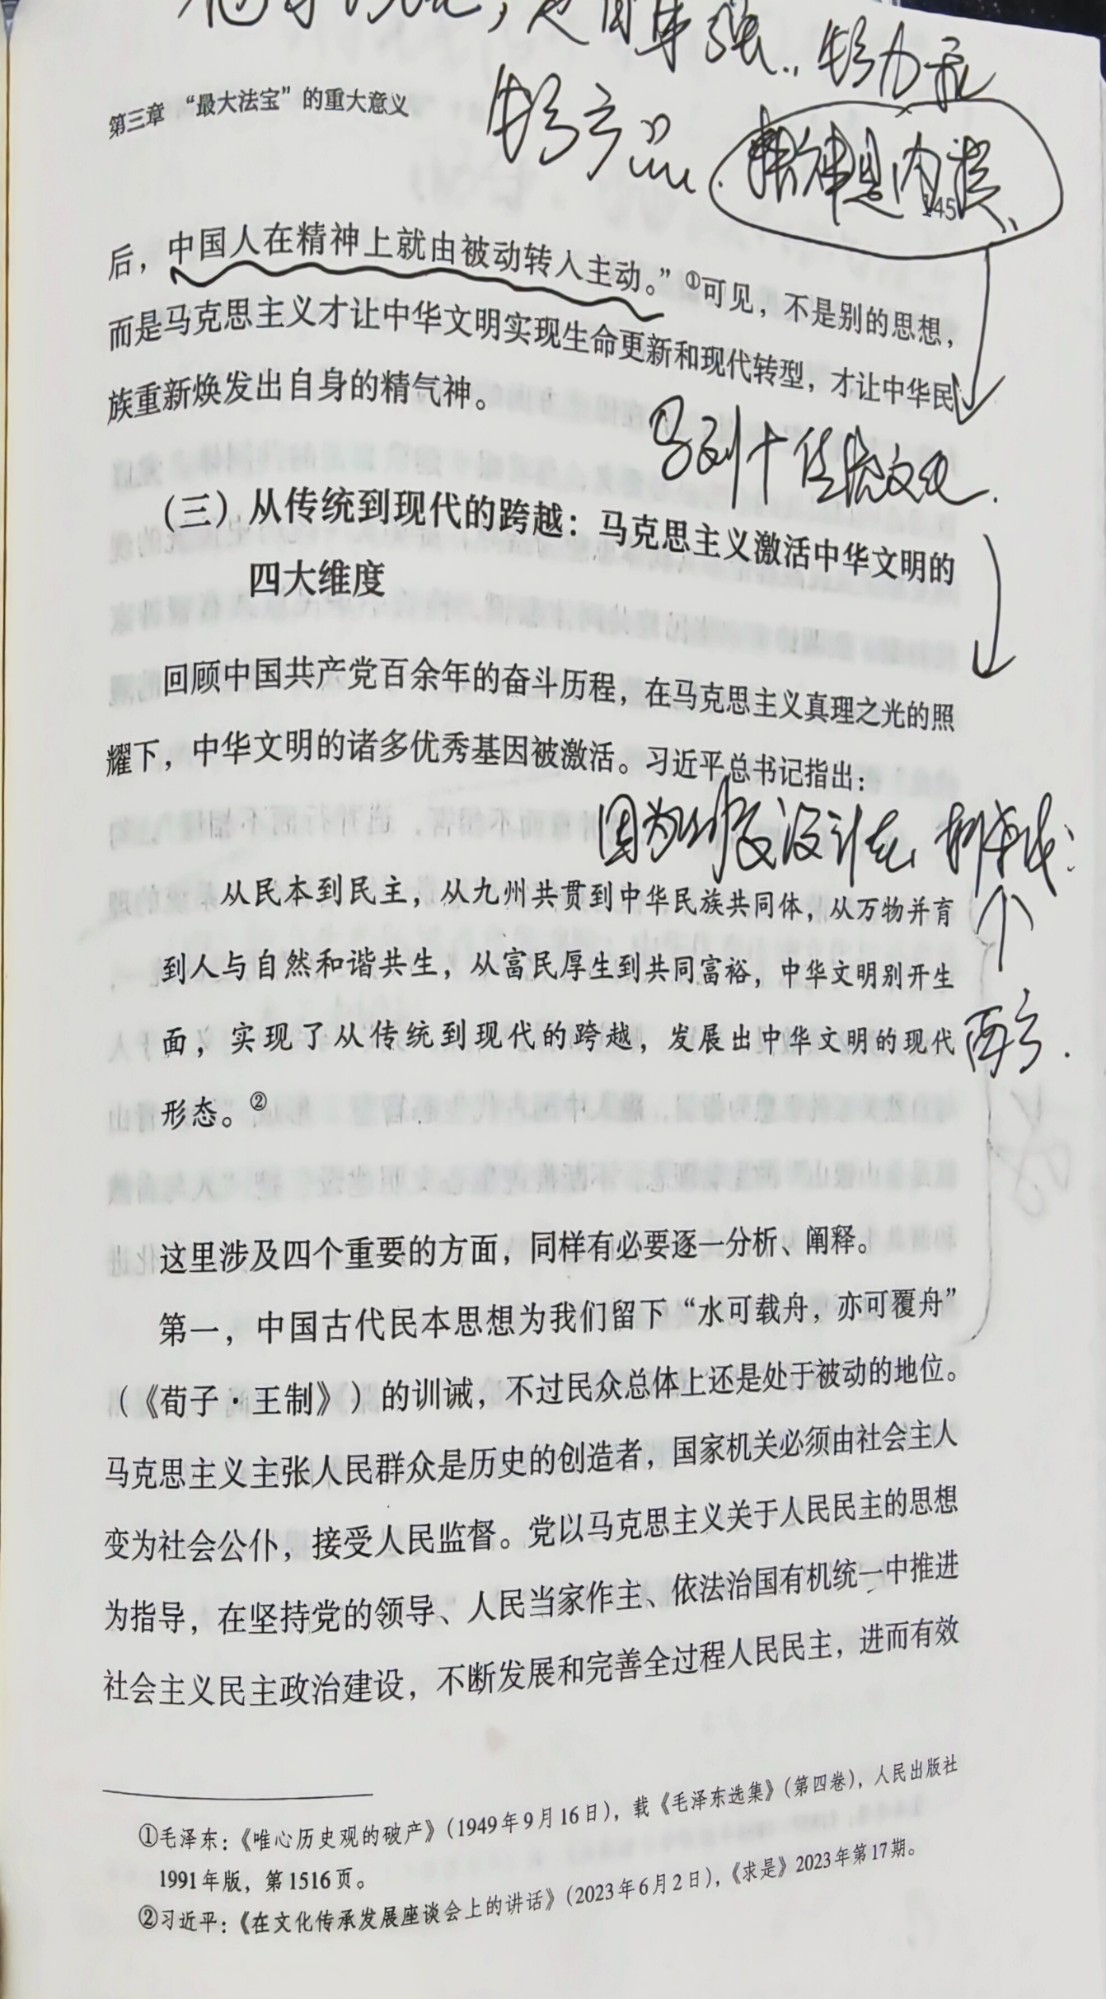 第三章 “最大法宝”的重大意义
145
后，中国人在精神上就由被动转入主动。”①可见，不是别的思想，
而是马克思主义才让中华文明实现生命更新和现代转型，才让中华民
族重新焕发出自身的精气神。
马列十传统文化.
（三）从传统到现代的跨越：马克思主义激活中华文明的
四大维度
回顾中国共产党百余年的奋斗历程，在马克思主义真理之光的照
耀下，中华文明的诸多优秀基因被激活。习近平总书记指出：
从民本到民主，从九州共贯到中华民族共同体，从万物并育
到人与自然和谐共生，从富民厚生到共同富裕，中华文明别开生
面，实现了从传统到现代的跨越，发展出中华文明的现代
形态。②
这里涉及四个重要的方面，同样有必要逐一分析、阐释。
第一，中国古代民本思想为我们留下“水可载舟，亦可覆舟”
（《荀子·王制》）的训诫，不过民众总体上还是处于被动的地位。
马克思主义主张人民群众是历史的创造者，国家机关必须由社会主人
变为社会公仆，接受人民监督。党以马克思主义关于人民民主的思想
为指导，在坚持党的领导、人民当家作主、依法治国有机统一中推进
社会主义民主政治建设，不断发展和完善全过程人民民主，进而有效
①毛泽东：《唯心历史观的破产》（1949年9月16日），载《毛泽东选集》（第四卷），人民出版社
1991年版，第1516页。
②习近平：《在文化传承发展座谈会上的讲话》（2023年6月2日），《求是》2023年第17期。